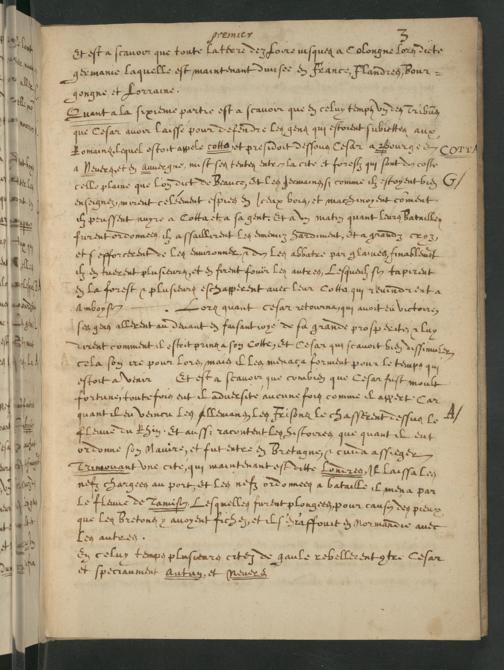 premier 3
Et est a scavoir que toute la terre dez Loire jusques a Colongne lors dicte
germanie laquelle est maintenant divisee en France, Flandres, Bour=
gongne et Lorraine.
Quant a la sixieme partie est a scavoir que en celuy temps ung des Tribuns
que Cesar avoir laisse pour defendre les gens qui estoient subiettes aux
Romains, lequel estoit apele Cotta et presidoit dessoubz Cesar a Bourges
COTTA
a Nevers, et en Auvergne, mist ses tentes entre la cite et forestz qui sont du coste
G/
celle plaine que l'on dict de Beauce, et les Germains si comme ilz estoyent bien
enseignez, mirent celeement espies en iceux bois, et machinoyent coment
ilz peussent nuyre a Cotta et a sa gent, Et a un matin quant leurs batailles
furent ordonnees ilz assallirent les ennemis hardiment, et a grands croz,
et s'efforcerent de les environner, et les abbatre par glaives, finablement
ilz en tuerent plusieurs, et en firent fouir les autres, Lesquelz se tapirent
en la forest et plusieurs eschapperent avec leur Cotta, qui revindrent a
Amboyse. Lors quant Cesar retourna, qui avoit eu victoires
ses gens allerent au devant en faisant joye de sa grande prosperite, et luy
dirent comment il estoit prins a son Cotte, et Cesar qui scavoit bien dissimuler
cela son ire pour lors, mais il les menaca forment pour le temps qui
estoit a venir Et est a scavoir que combien que Cesar fust moult
fortune, toutefois eut il adversite aucune fois comme il appert Car
quant il eu vencu les Allemans, les Frisons le chasserent dessus le
A/
fleuve du Rhin. Et aussi racontent les histoires que quant il eut
ordonne son Navire, et fut entre en Bretagne, et cuida assieger
Trinovant une cite, qui maintenant est ditte Londres, Il laissa les
nefz chargees au port, et les nefz ordonnees a bataille il mena par
le fleuve de Tamise, Lesquelles furent plongees, pour cause des pieux
que les Bretons y avoyent fichez, et il s'en affouit en Normandie avec
les autres.
En celuy temps plusieurs citez de gaule rebellerent contre Cesar
et speciaument Autun, et Nevers